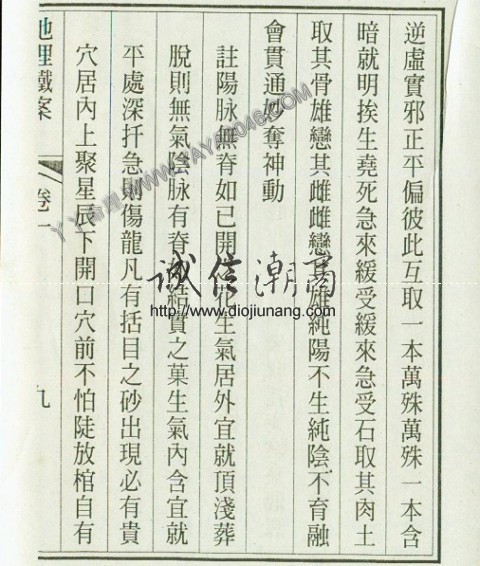 逆虛實邪正平偏彼此互取一本萬殊萬殊一本含
暗就明挨生堯死急來緩受緩來急受石取其肉土
取其骨雄戀其雌雌戀其雄純陽不生純陰不育融
會貫通妙奪神動
註陽脉無脊如已開之花生氣居外宜就頂淺葬
脫則無氣陰脉有脊結實之菓生氣內含宜就
平處深扦急則傷龍凡有括目之砂出現必有貴
穴居內上聚星辰下開口穴前不怕陡放棺自有
地理鐵案
卷一
九
誠信潮商
www.diojiunang.com